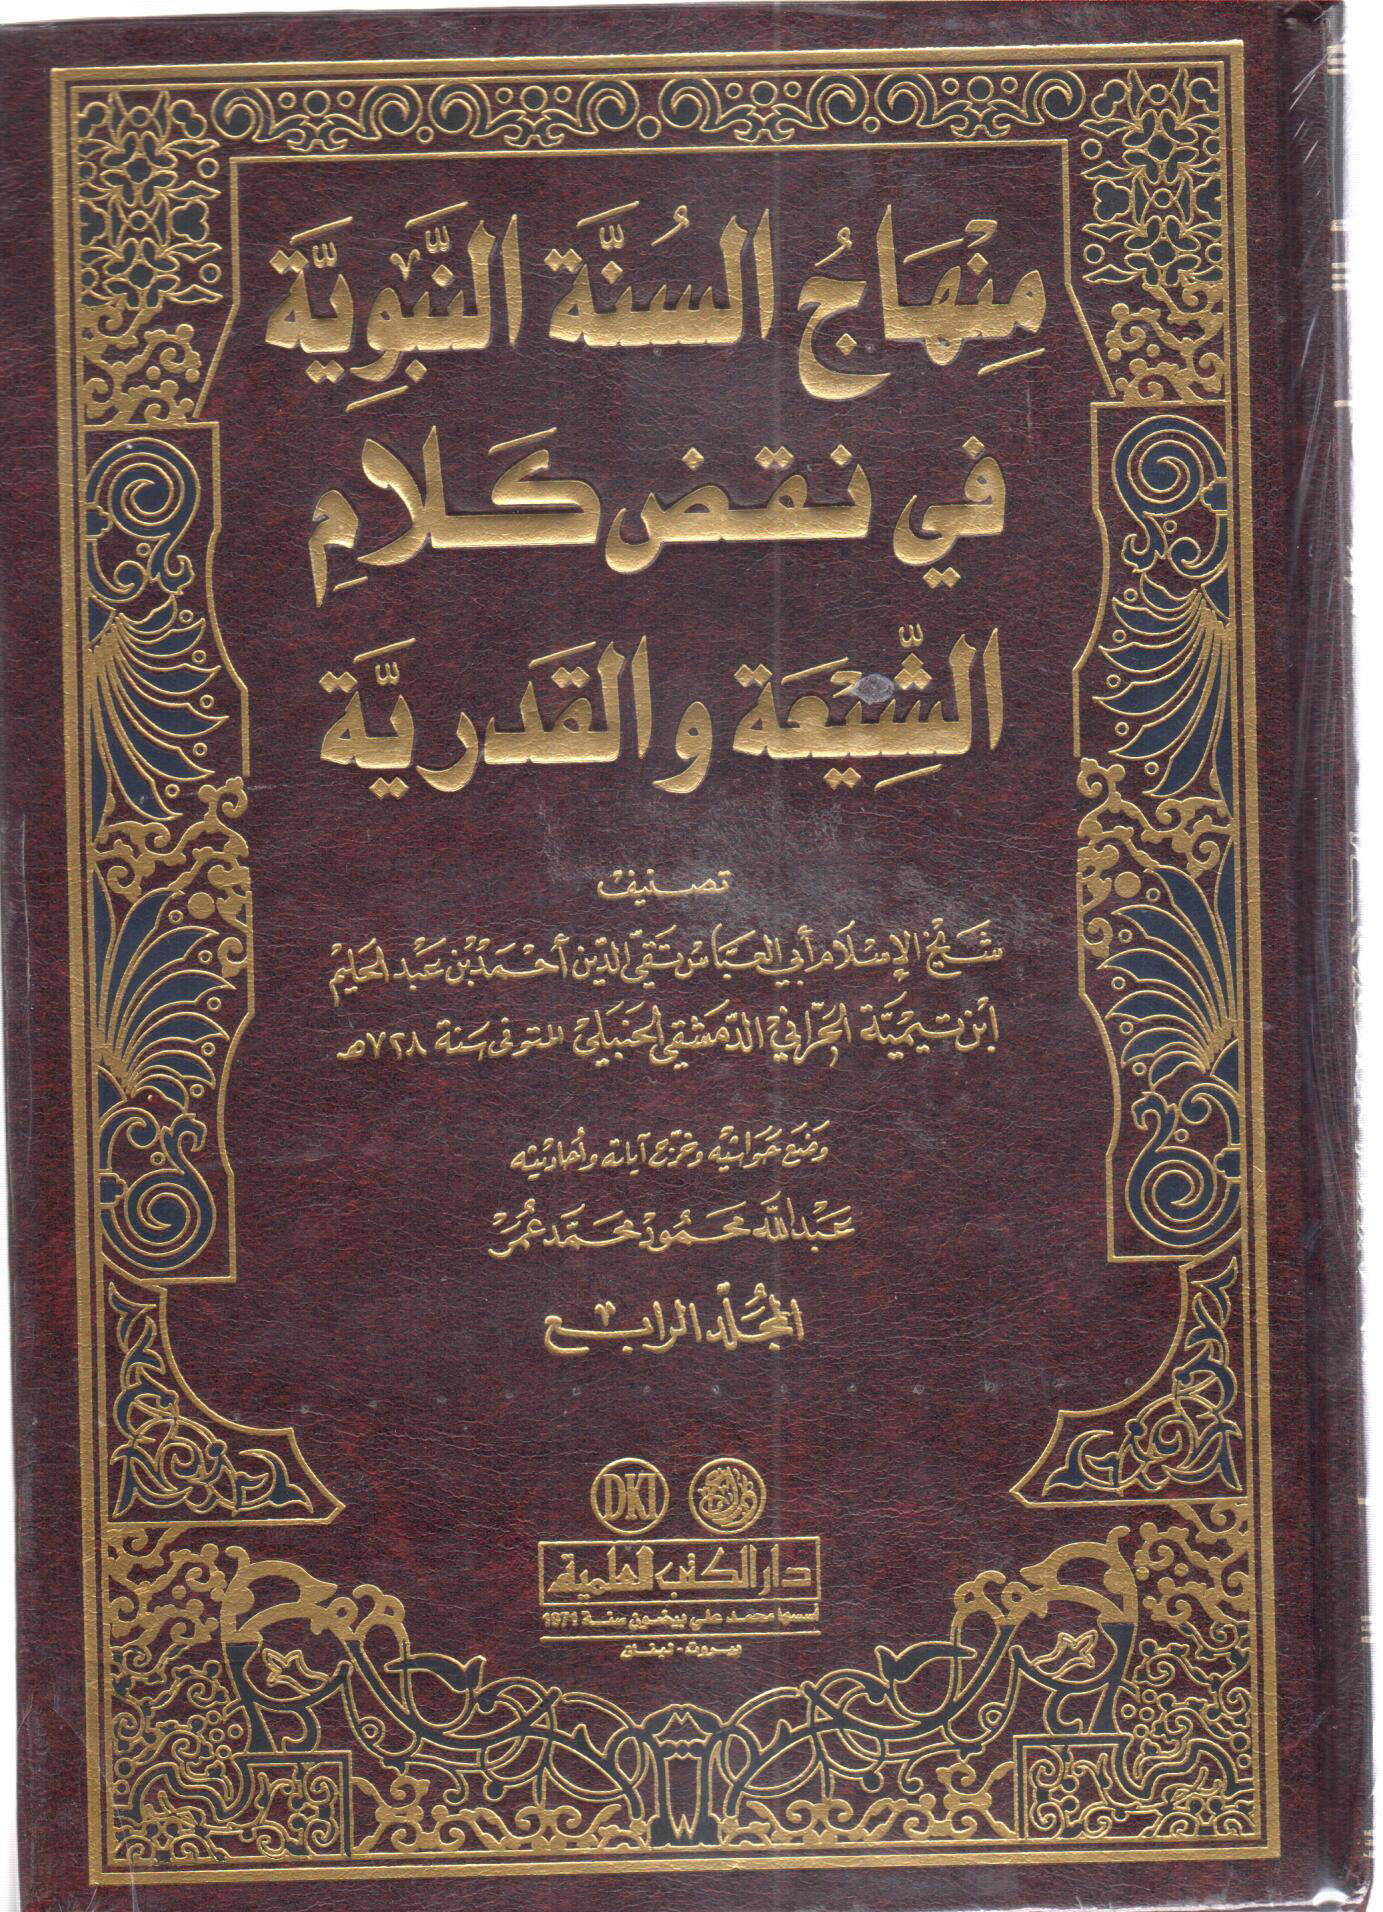 مِنْهَاجُ السُنَّة النَّبَوِيَّة
في نقض كَلامِ
الشِّيْعَة والقَدَريَّة
تصنيف
شَيْخ الإسْلَام أبي العَبَّاس تَقيّ الدّين أحْمَد بْن عَبْد الحَليم
ابْن تيميَّة الحَرّاني الدّمَشقي الحَنبَلي المتوفى سَنة ٧٢٨ هـ
وَضَع حَوَاشيْه وَخرّج آياته وأحَاديثه
عَبْد اللَّه محَمُود محَمَّد عُمَر
المجُلّد الرابع
DKI
دار الكتب العلمية
أسسها محمد علي بيضون سنة 1971
بيروت - لبنان